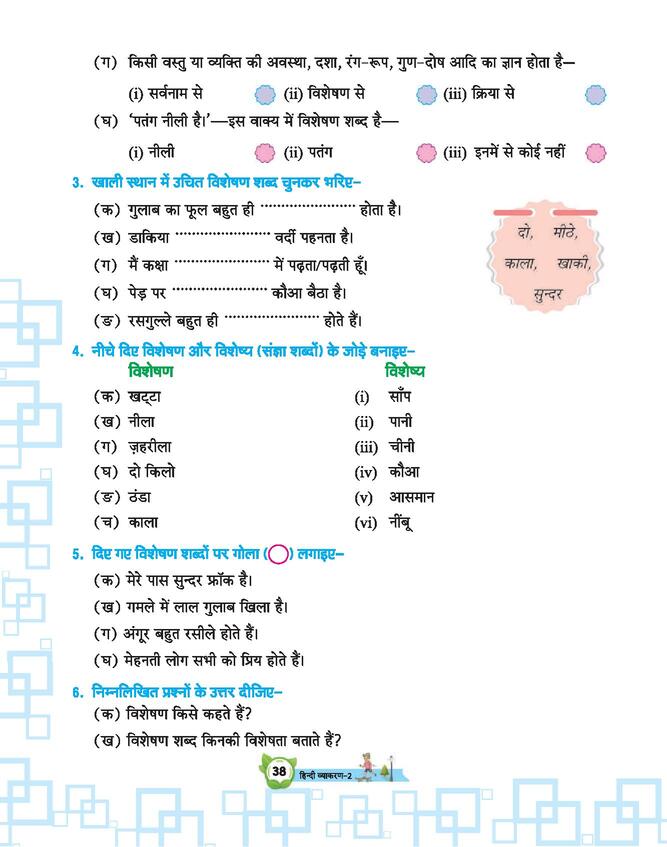 (ग) किसी वस्तु या व्यक्ति की अवस्था, दशा, रंग-रूप, गुण-दोष आदि का ज्ञान होता है—
(i) सर्वनाम से (ii) विशेषण से (iii) क्रिया से
(घ) 'पतंग नीली है।'—इस वाक्य में विशेषण शब्द है—
(i) नीली (ii) पतंग (iii) इनमें से कोई नहीं
3. खाली स्थान में उचित विशेषण शब्द चुनकर भरिए-
(क) गुलाब का फूल बहुत ही ........................ होता है।
(ख) डाकिया ........................ वर्दी पहनता है।
(ग) मैं कक्षा ........................ में पढ़ता/पढ़ती हूँ।
(घ) पेड़ पर ........................ कौआ बैठा है।
(ङ) रसगुल्ले बहुत ही ........................ होते हैं।
दो, मीठे,
काला, खाकी,
सुन्दर
4. नीचे दिए विशेषण और विशेष्य (संज्ञा शब्दों) के जोड़े बनाइए-
विशेषण विशेष्य
(क) खट्टा (i) साँप
(ख) नीला (ii) पानी
(ग) ज़हरीला (iii) चीनी
(घ) दो किलो (iv) कौआ
(ङ) ठंडा (v) आसमान
(च) काला (vi) नींबू
5. दिए गए विशेषण शब्दों पर गोला (◯) लगाइए-
(क) मेरे पास सुन्दर फ्रॉक है।
(ख) गमले में लाल गुलाब खिला है।
(ग) अंगूर बहुत रसीले होते हैं।
(घ) मेहनती लोग सभी को प्रिय होते हैं।
6. निम्नलिखित प्रश्नों के उत्तर दीजिए-
(क) विशेषण किसे कहते हैं?
(ख) विशेषण शब्द किनकी विशेषता बताते हैं?
38 हिन्दी व्याकरण-2